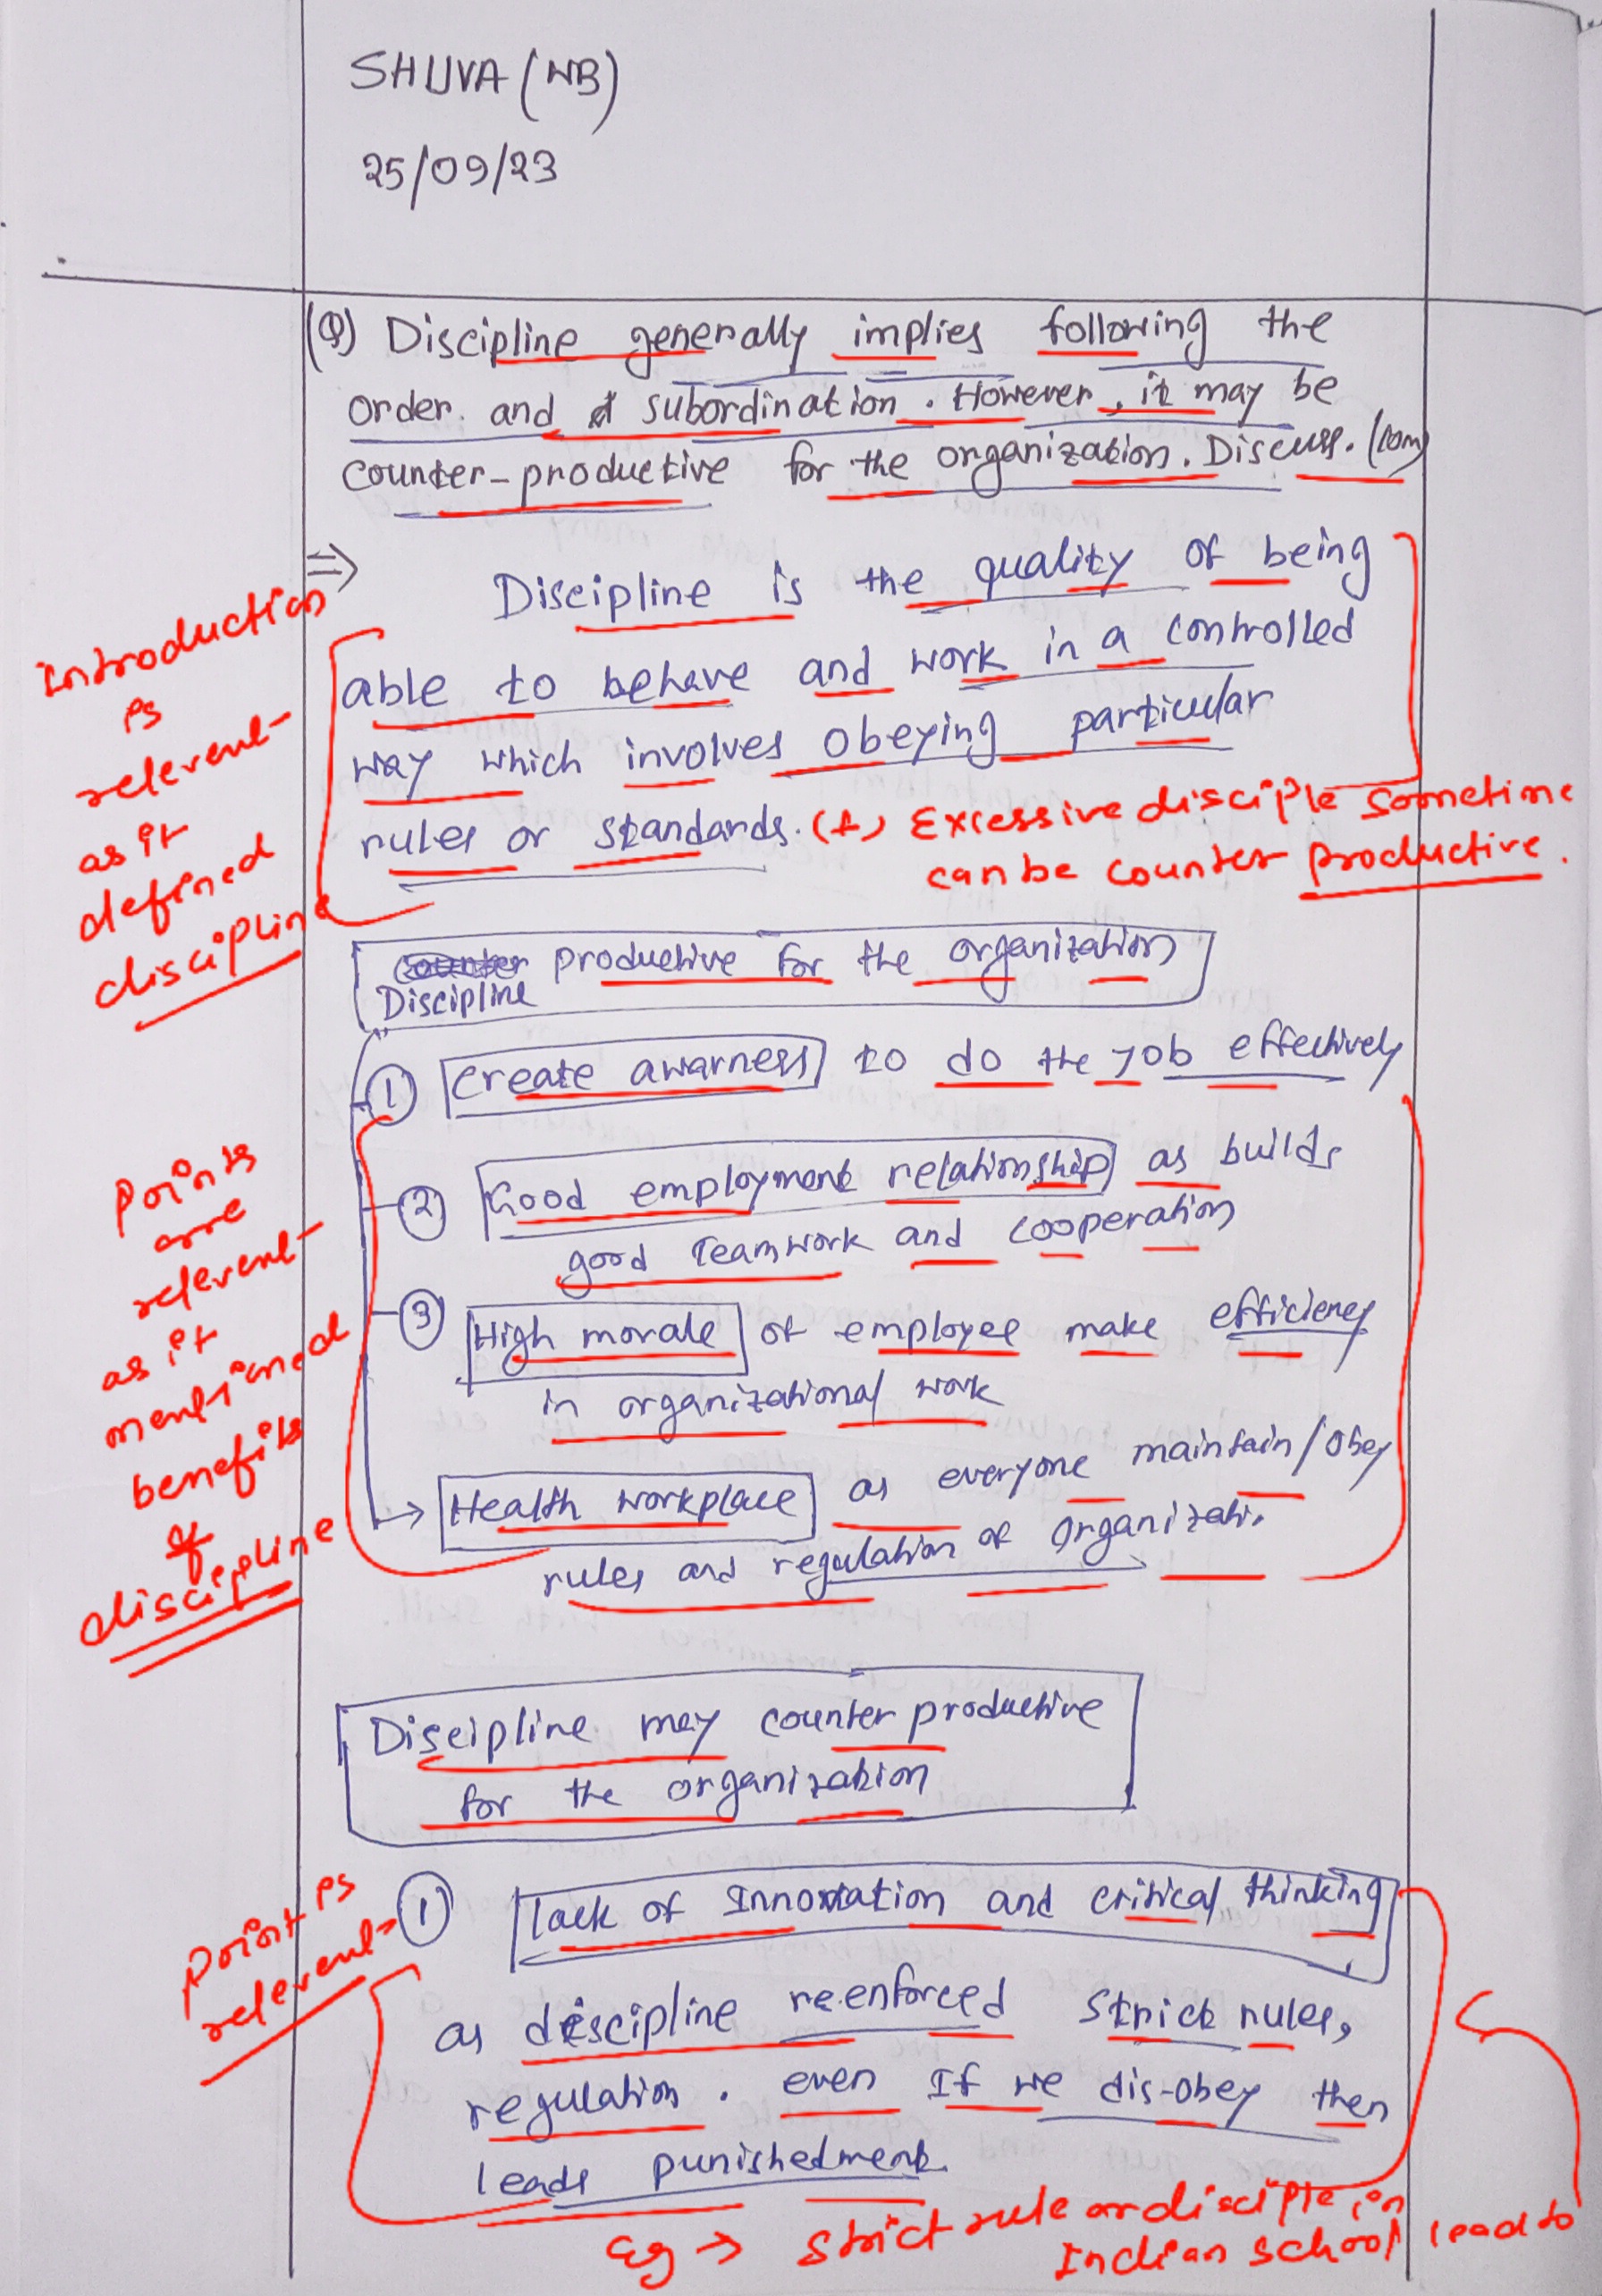 SHUVA (WB)
25/09/23
(Q) Discipline generally implies following the
order. and subordination. However, it may be
counter-productive for the organization. Discuss. (10m)
⇒
Discipline is the quality of being
able to behave and work in a controlled
way which involves obeying particular
rules or standards. (+) Excessive disciple sometime
can be counter productive.
introduction
is
relevent
as it
defined
discipline
Counter productive for the organization
Discipline
① Create awarness to do the job effectively
② Good employment relationship as builds
good teamwork and cooperation
③ High morale of employee make efficiency
in organizational work
→ Health workplace as everyone maintain/obey
rules and regulation of organizati.
Points
are
relevent
as it
mentioned
benefits
of
discipline
Discipline may counter productive
for the organization
point is
relevent
① lack of Innovation and critical thinking
as discipline re.enforced strick rules,
regulation. even If we dis-obey then
leads punishedment
Eg → strict rule or disciple in
Indian school lead to